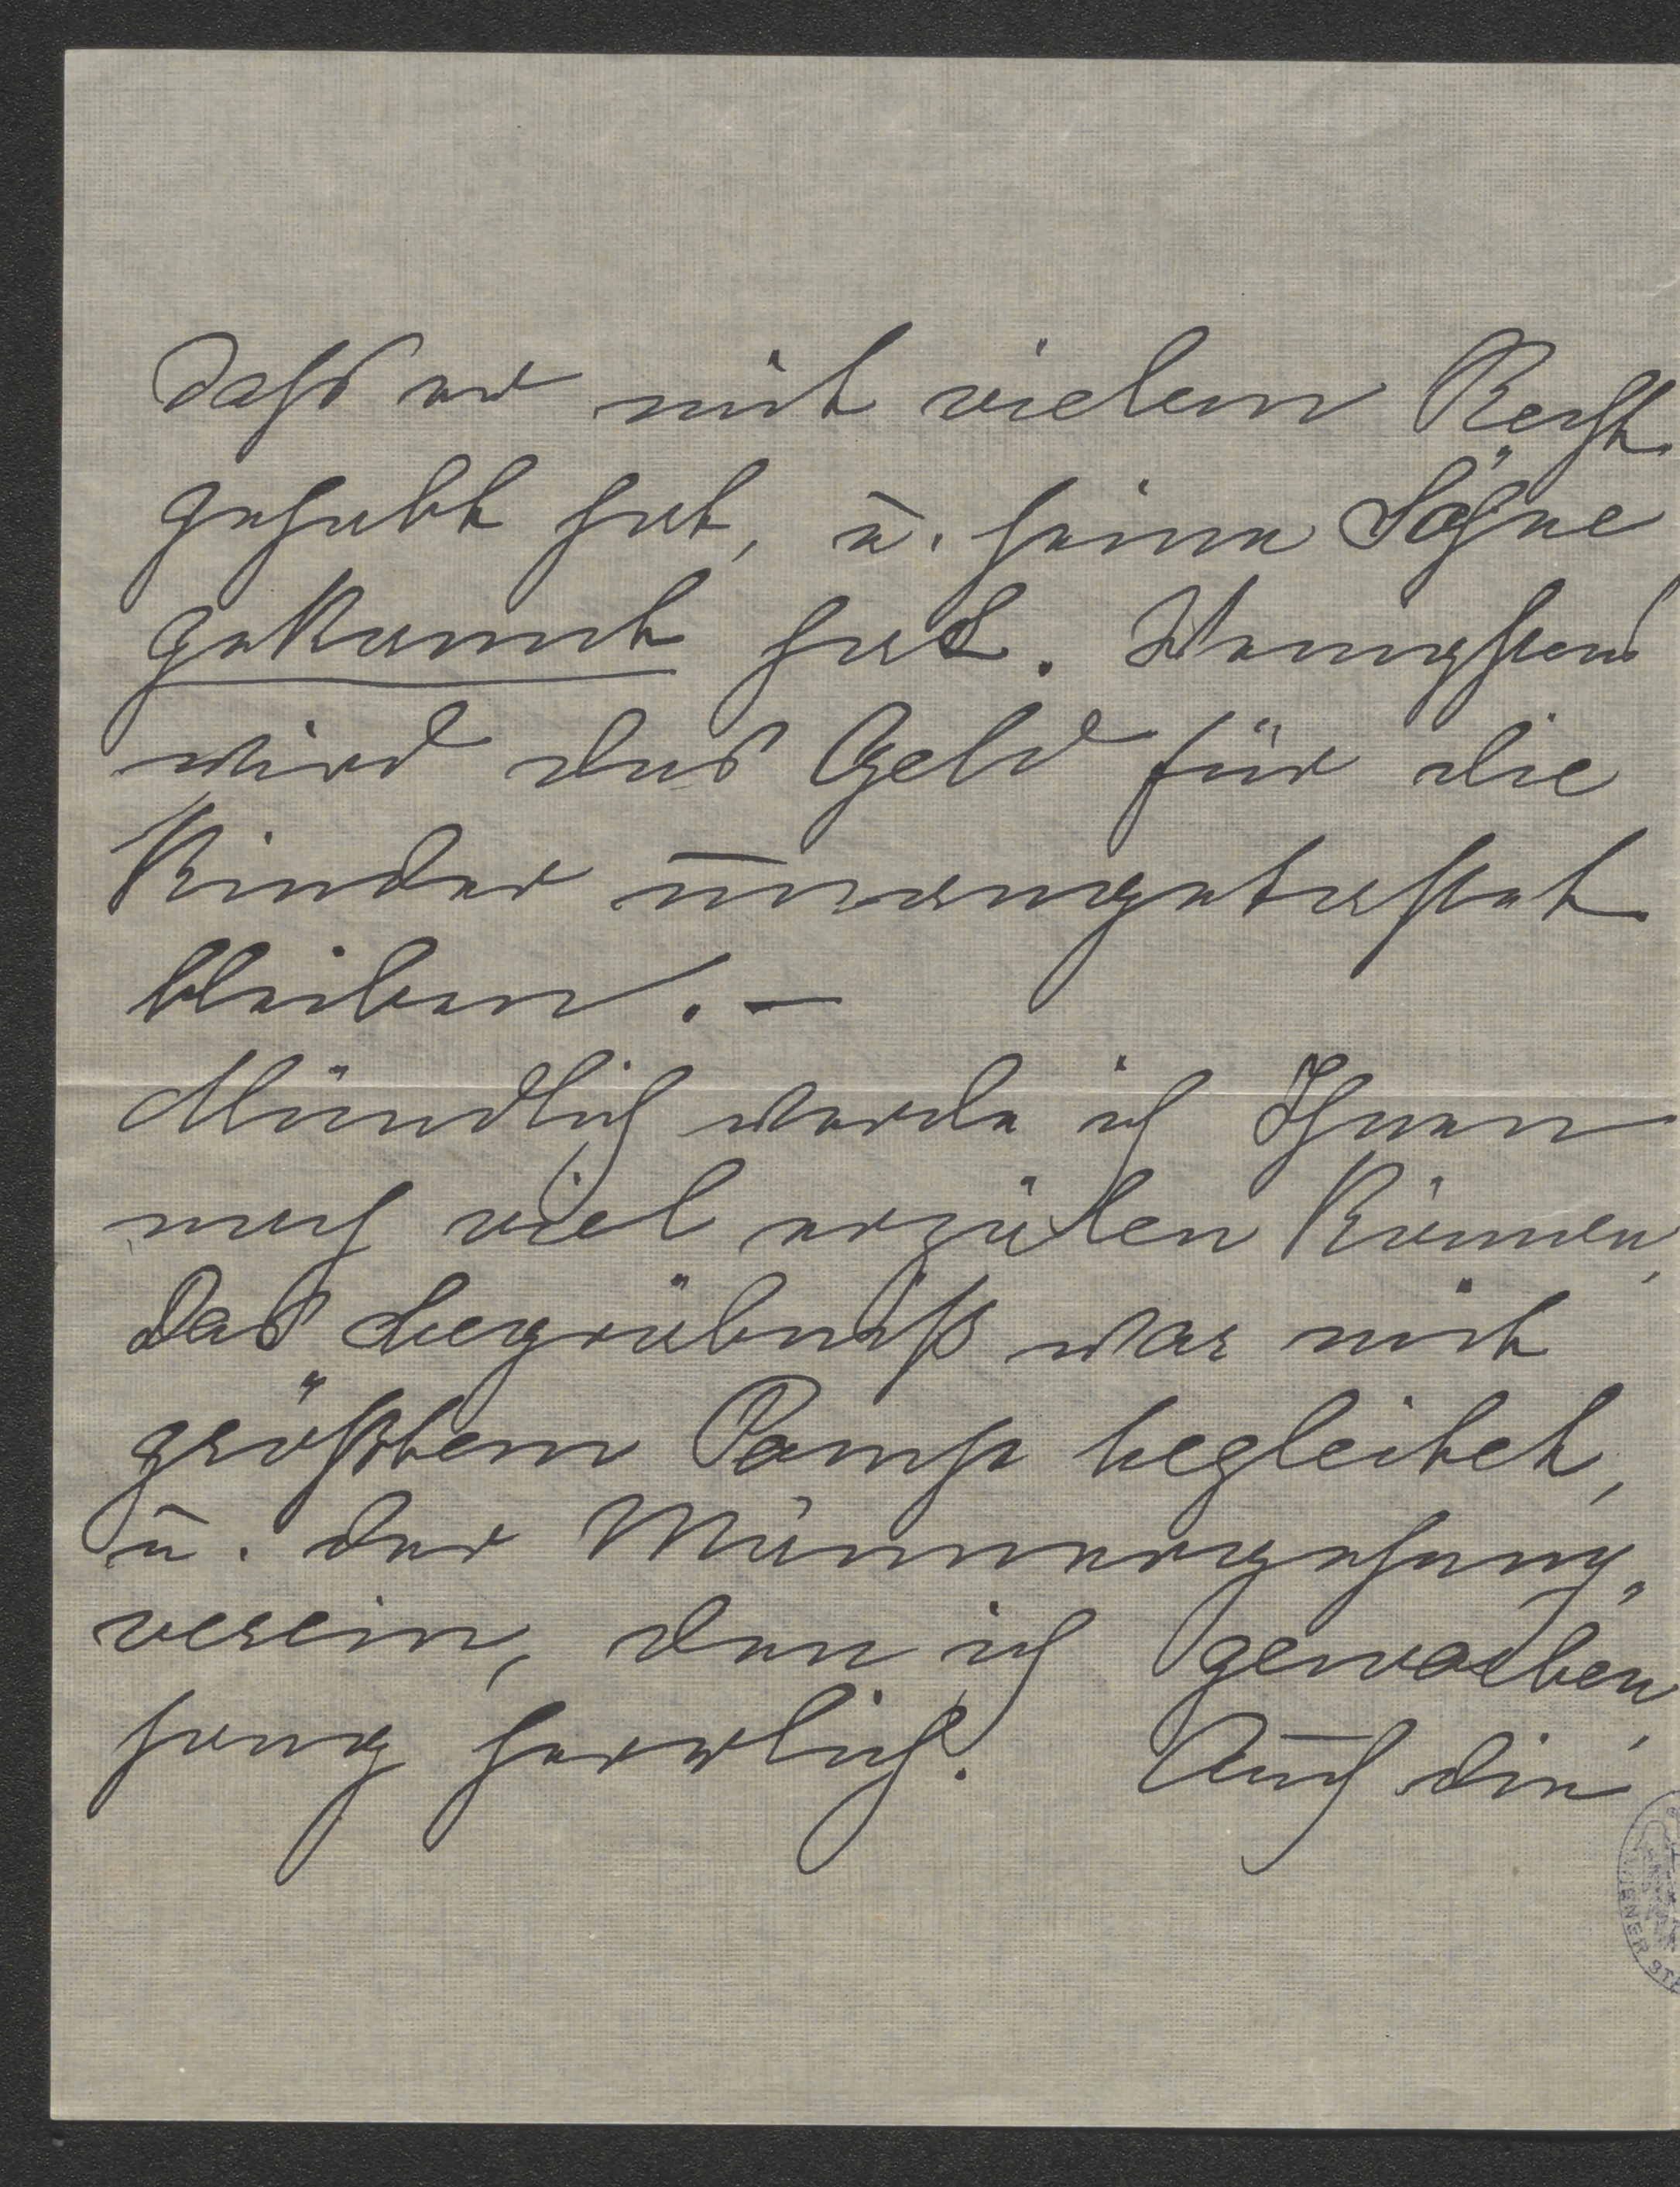 dass er mit vielem Recht
gehabt hat, u. seine Söhne
gekannt hat. Wenigstens
wird das Geld für die
Kinder unangetastet
bleiben. —
Mündlich werde ich Ihnen
noch viel erzälen können,
Das Begräbniß war mit
größtem Pomp begleitet,
u. der Männergesang„
verein, den ich geworben,
sang herrlich. Auch die